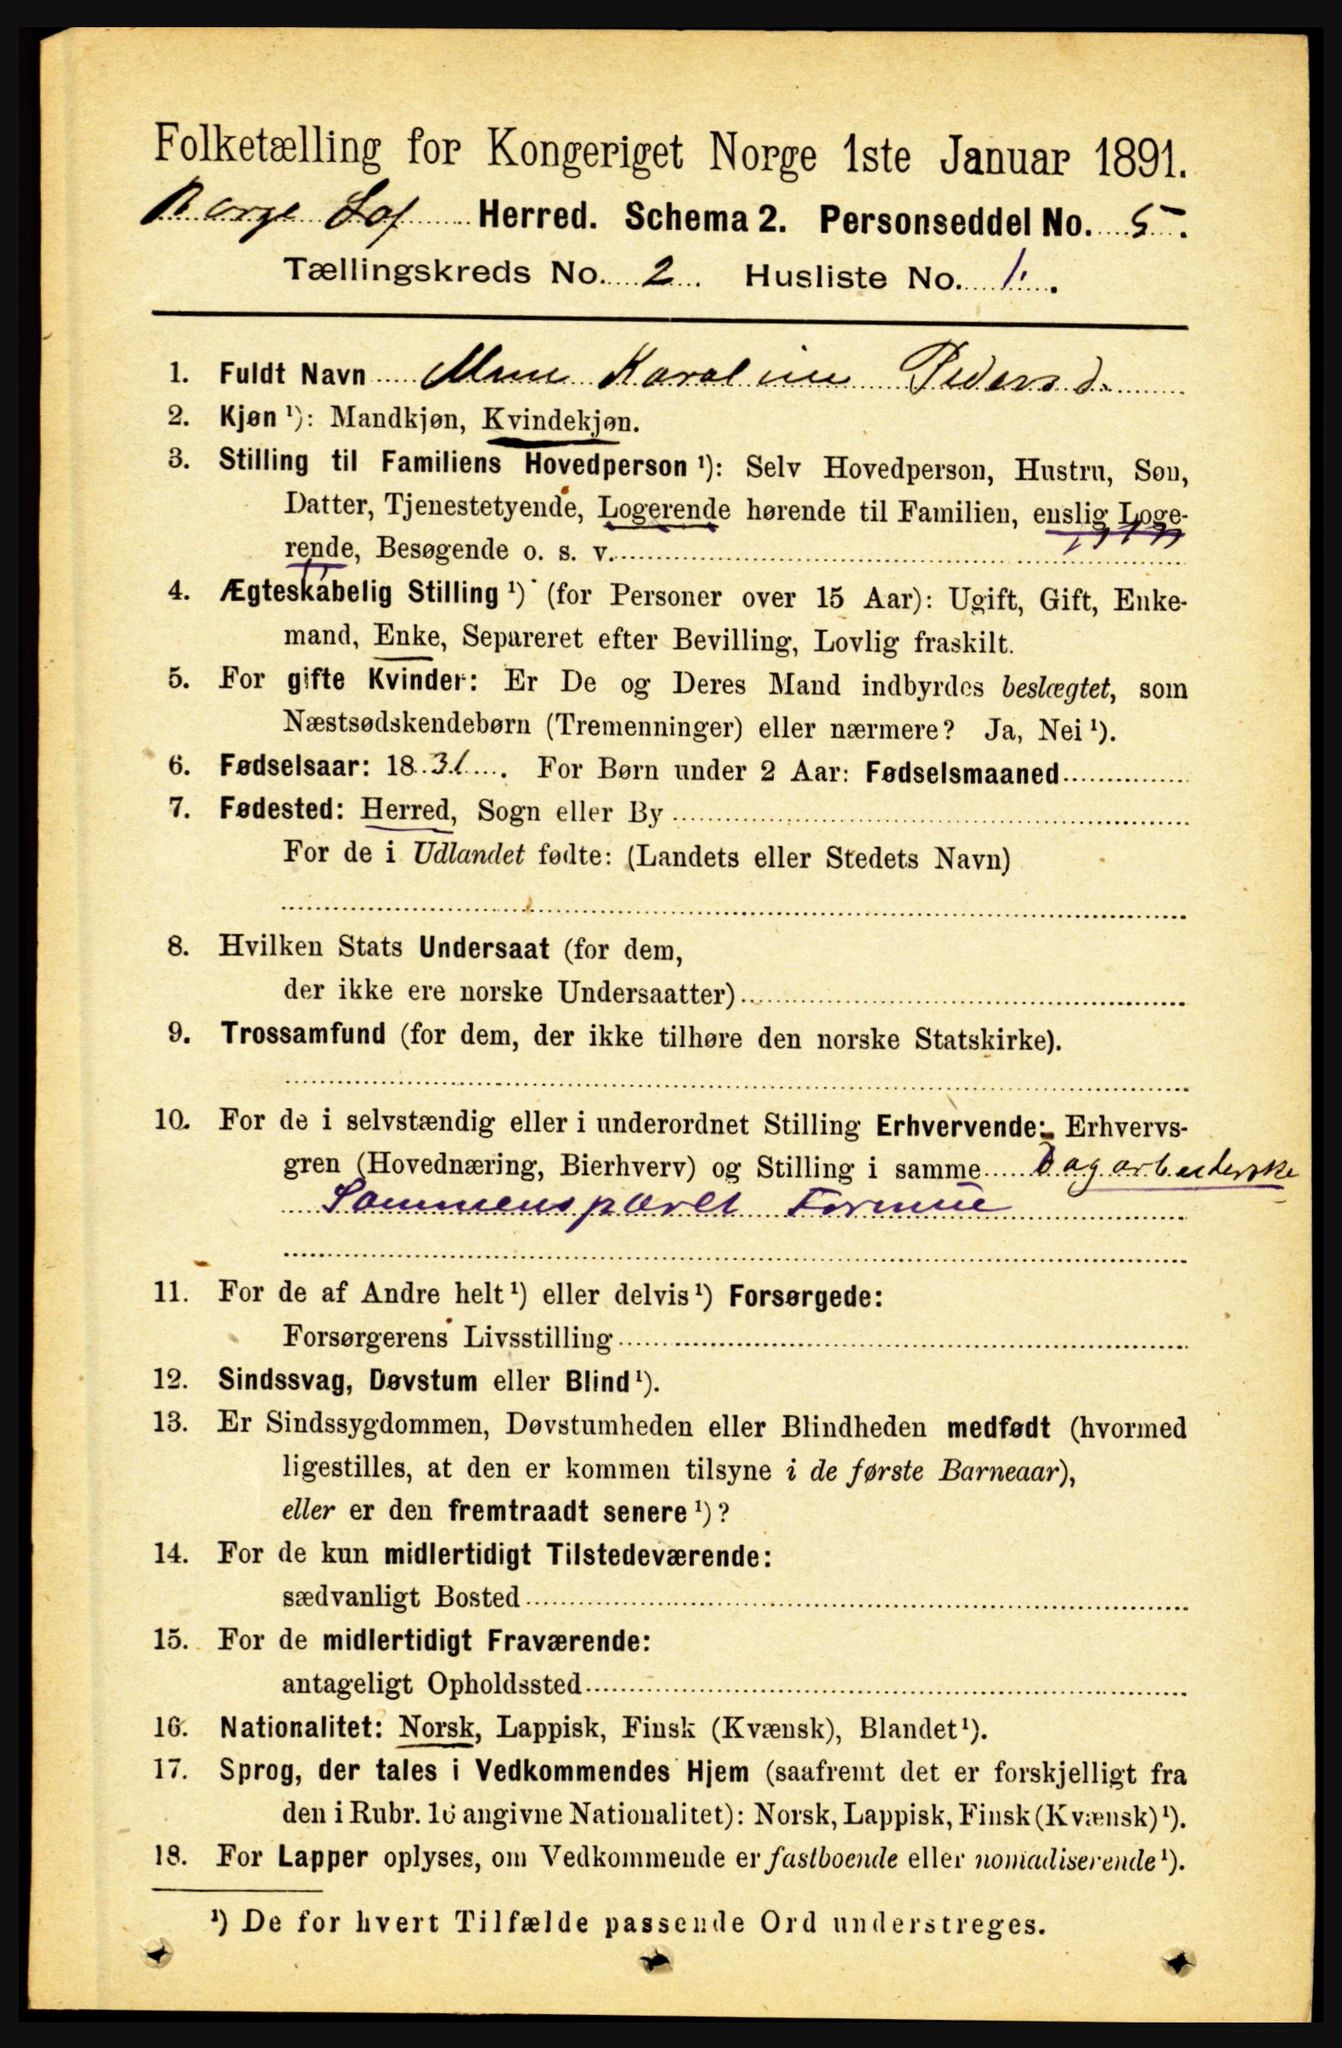 Folketælling for Kongeriget Norge 1ste Januar 1891.
Borge Lof Herred. Schema 2. Personseddel No. 5.
Tællingskreds No. 2 Husliste No. 1.
1. Fuldt Navn Karoline Pedersd.
2. Kjøn ¹): Mandkjøn, Kvindekjøn.
3. Stilling til Familiens Hovedperson ¹): Selv Hovedperson, Hustru, Søn,
Datter, Tjenestetyende, Logerende hørende til Familien, enslig Loge-
rende, Besøgende o. s. v.
4. Ægteskabelig Stilling ¹) (for Personer over 15 Aar): Ugift, Gift, Enke-
mand, Enke, Separeret efter Bevilling, Lovlig fraskilt.
5. For gifte Kvinder: Er De og Deres Mand indbyrdes beslægtet, som
Næstsødskendebørn (Tremenninger) eller nærmere? Ja, Nei ¹).
6. Fødselsaar: 1831. For Børn under 2 Aar: Fødselsmaaned
7. Fødested: Herred, Sogn eller By
For de i Udlandet fødte: (Landets eller Stedets Navn)
8. Hvilken Stats Undersaat (for dem,
der ikke ere norske Undersaatter)
9. Trossamfund (for dem, der ikke tilhøre den norske Statskirke).
10. For de i selvstændig eller i underordnet Stilling Erhvervende: Erhvervs-
gren (Hovednæring, Bierhverv) og Stilling i samme Dagarbeiderske
Sammensparet Formue
11. For de af Andre helt ¹) eller delvis ¹) Forsørgede:
Forsørgerens Livsstilling
12. Sindssvag, Døvstum eller Blind ¹).
13. Er Sindssygdommen, Døvstumheden eller Blindheden medfødt (hvormed
ligestilles, at den er kommen tilsyne i de første Barneaar),
eller er den fremtraadt senere ¹)?
14. For de kun midlertidigt Tilstedeværende:
sædvanligt Bosted
15. For de midlertidigt Fraværende:
antageligt Opholdssted
16. Nationalitet: Norsk, Lappisk, Finsk (Kvænsk), Blandet ¹).
17. Sprog, der tales i Vedkommendes Hjem (saafremt det er forskjelligt fra
den i Rubr. 16 angivne Nationalitet): Norsk, Lappisk, Finsk (Kvænsk) ¹).
18. For Lapper oplyses, om Vedkommende er fastboende eller nomadiserende ¹).
¹) De for hvert Tilfælde passende Ord understreges.